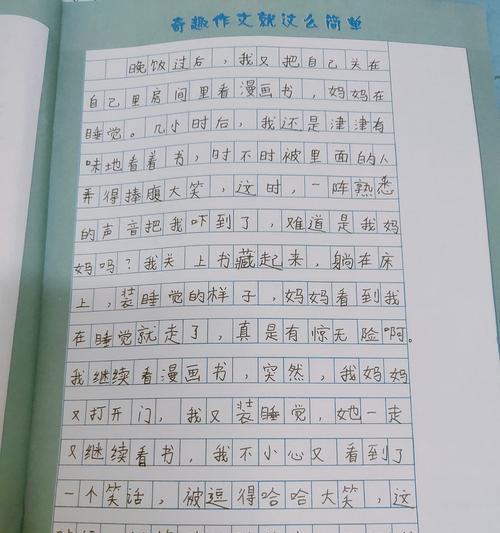 奇趣作文就这么简单
晚饭过后，我又把自己关在
自己里房间里看漫画书，妈妈在
睡觉。几小时后，我还是津津有
味地看着书，时不时被里面的人
弄得捧腹大笑，这时，一阵熟悉
的声音把我吓到了，难道是我妈
妈吗？我关上书藏起来，躺在床
上，装睡觉的样子，妈妈看到我
在睡觉就走了，真是有惊无险啊。
我继续看漫画书，突然，我妈妈
又打开门，我又装睡觉，她一走
又继续看书，我不小心又看到了
一个笑话，被逗得哈哈大笑，这